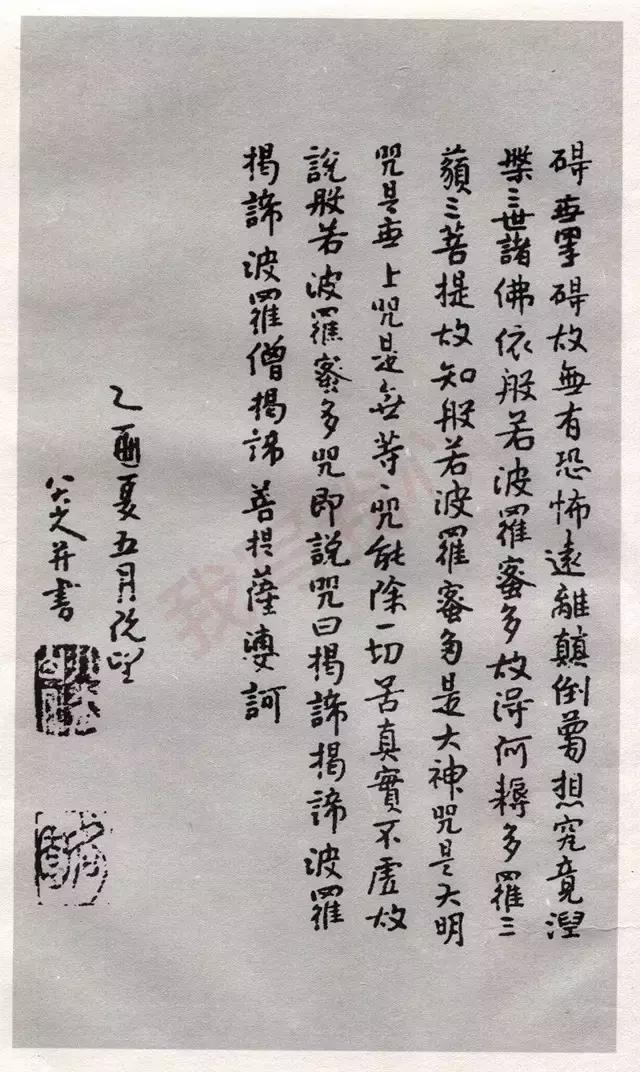 碍無罣碍故無有恐怖遠離顛倒夢想究竟涅
槃三世諸佛依般若波羅蜜多故得阿耨多羅三
藐三菩提故知般若波羅蜜多是大神咒是大明
咒是無上咒是無等〻咒能除一切苦真實不虛故
說般若波羅蜜多咒即說咒曰揭諦揭諦波羅
揭諦波羅僧揭諦菩提薩婆訶
乙酉夏五月既望
八大并書